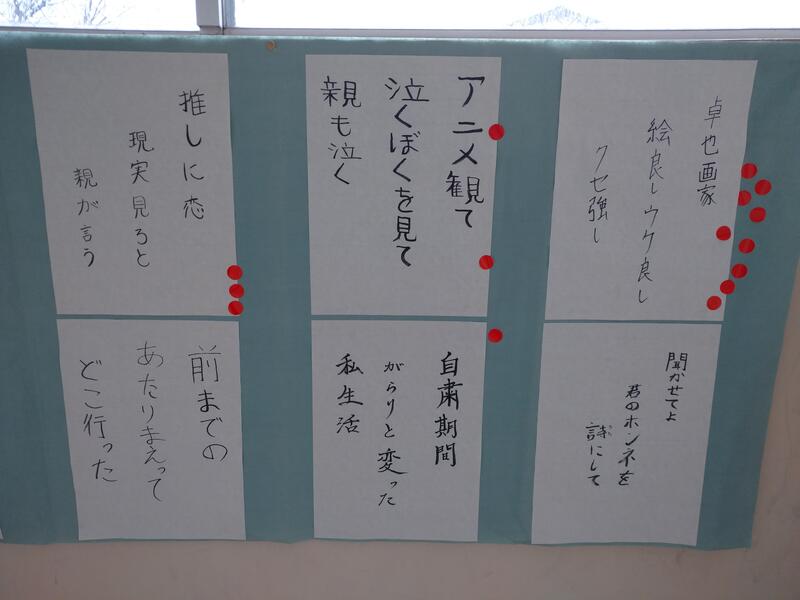 卓也画家
絵良しウケ良し
クセ強し
アニメ観て
泣くぼくを見て
親も泣く
推しに恋
現実見ろと
親が言う
聞かせてよ
君のホンネを
詩にして
自粛期間
がらりと変った
私生活
前までの
あたりまえって
どこ行った